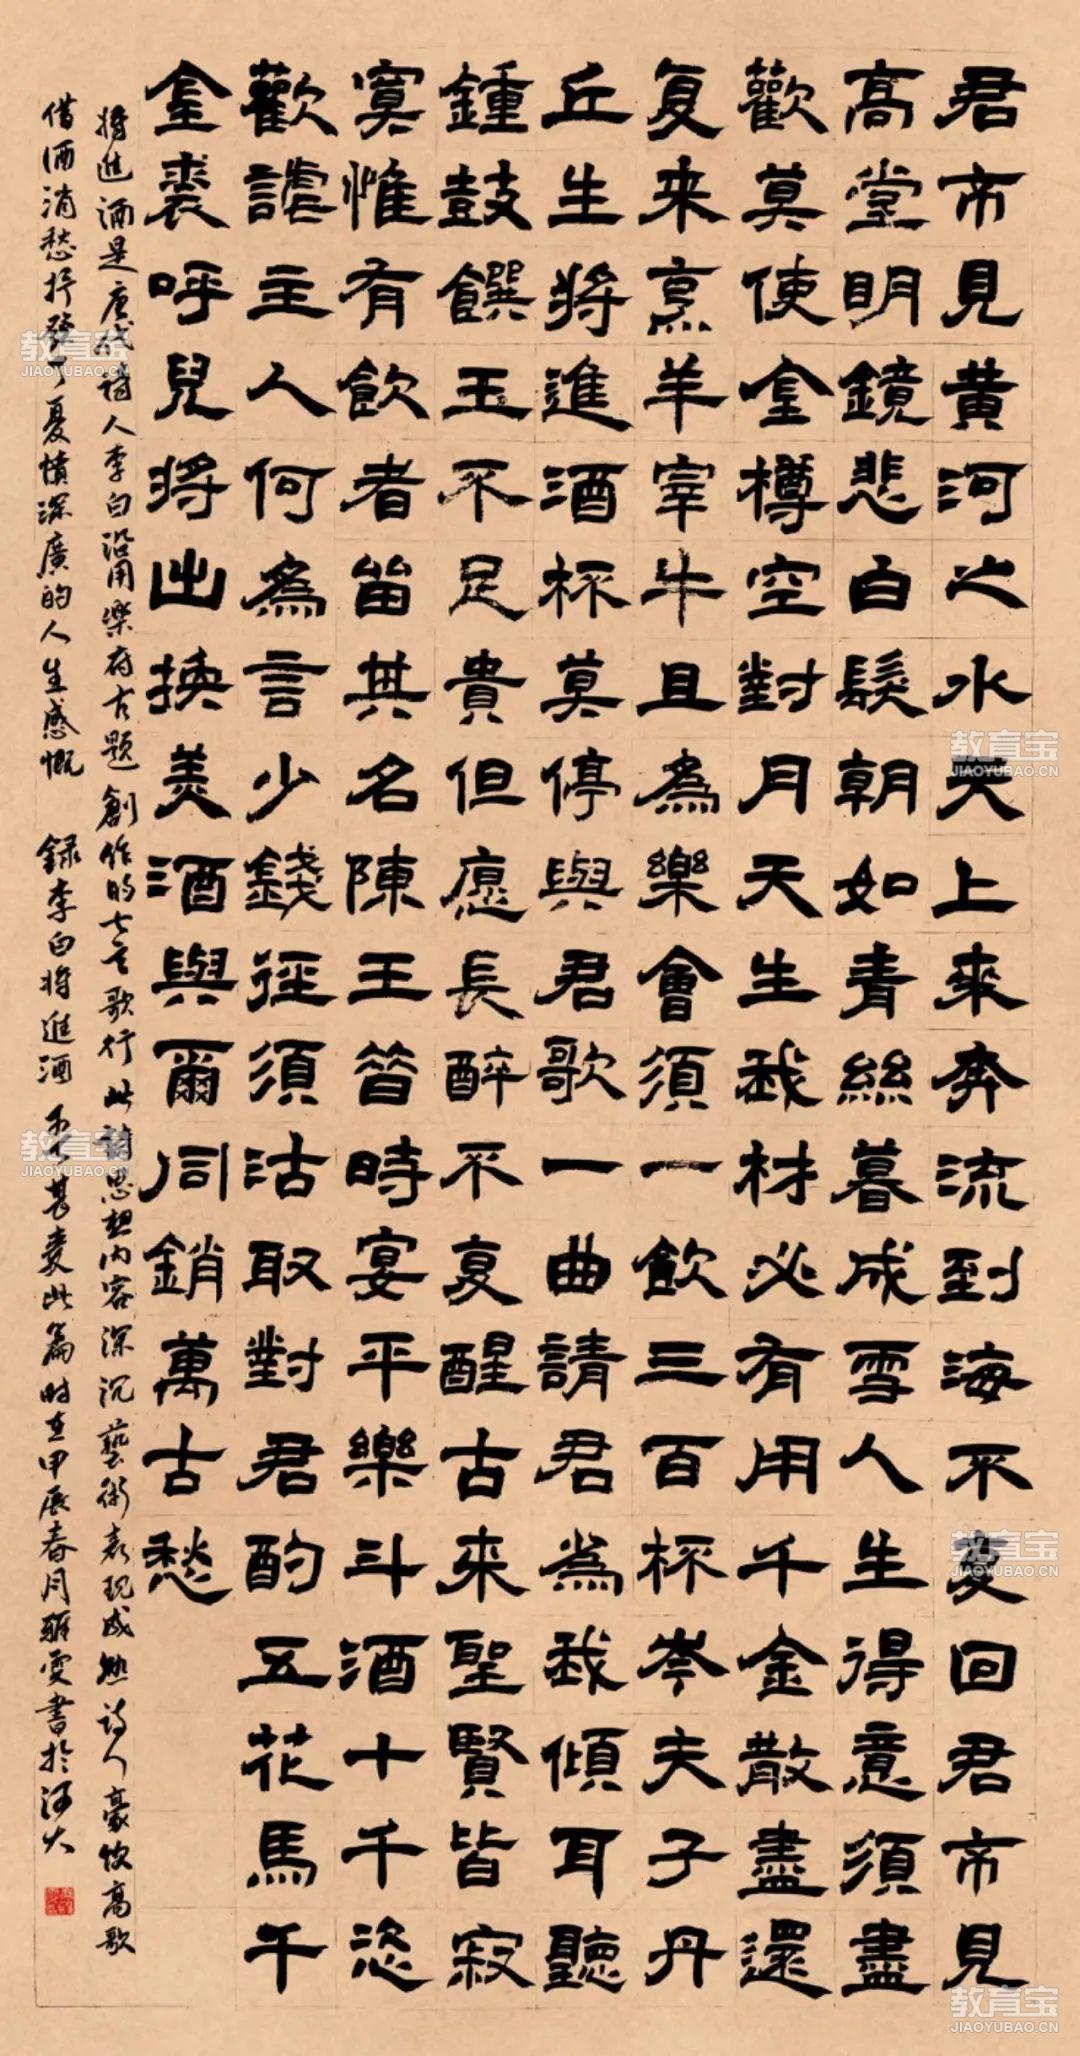 君不見黄河之水天上來奔流到海不复回君不見
高堂明鏡悲白髮朝如青絲暮成雪人生得意須盡
歡莫使金樽空對月天生我材必有用千金散盡還
复来烹羊宰牛且為樂會須一飲三百杯岑夫子丹
丘生將進酒杯莫停與君歌一曲請君為我傾耳聽
鍾鼓饌玉不足貴但愿長醉不复醒古來聖賢皆寂
寞惟有飲者留其名陳王昔時宴平樂斗酒十千恣
歡謔主人何為言少錢徑須沽取對君酌五花馬千
金裘呼兒將出換美酒與爾同銷萬古愁
將進酒是唐代詩人李白沿用樂府古題創作的七言歌行此詩思想内容深沉藝術表現成熟詩人豪飲高歌
借酒消愁抒發了憂憤深廣的人生感慨 録李白將進酒 甚愛此篇時在甲辰春月雯書於河大
教育宝
JIAOYUBAO.CN
教育宝
JIAOYUBAO.CN
教育宝
JIAOYUBAO.CN
教育宝
JIAOYUBAO.CN
教育宝
JIAOYUBAO.CN